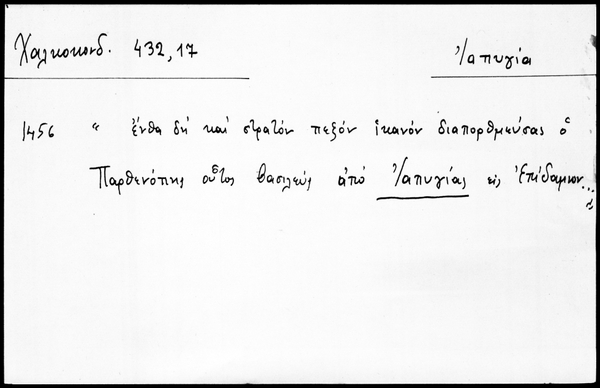 Χαλκοκονδ. 432,17
Ἰαπυγία
1456 " ἔνθα δὴ καὶ στρατόν πεζόν ἱκανόν διαπορθμεύσας ὁ
Παρθενόπης οὗτος βασιλεὺς ἀπό Ἰαπυγίας εἰς Ἐπίδαμνον...